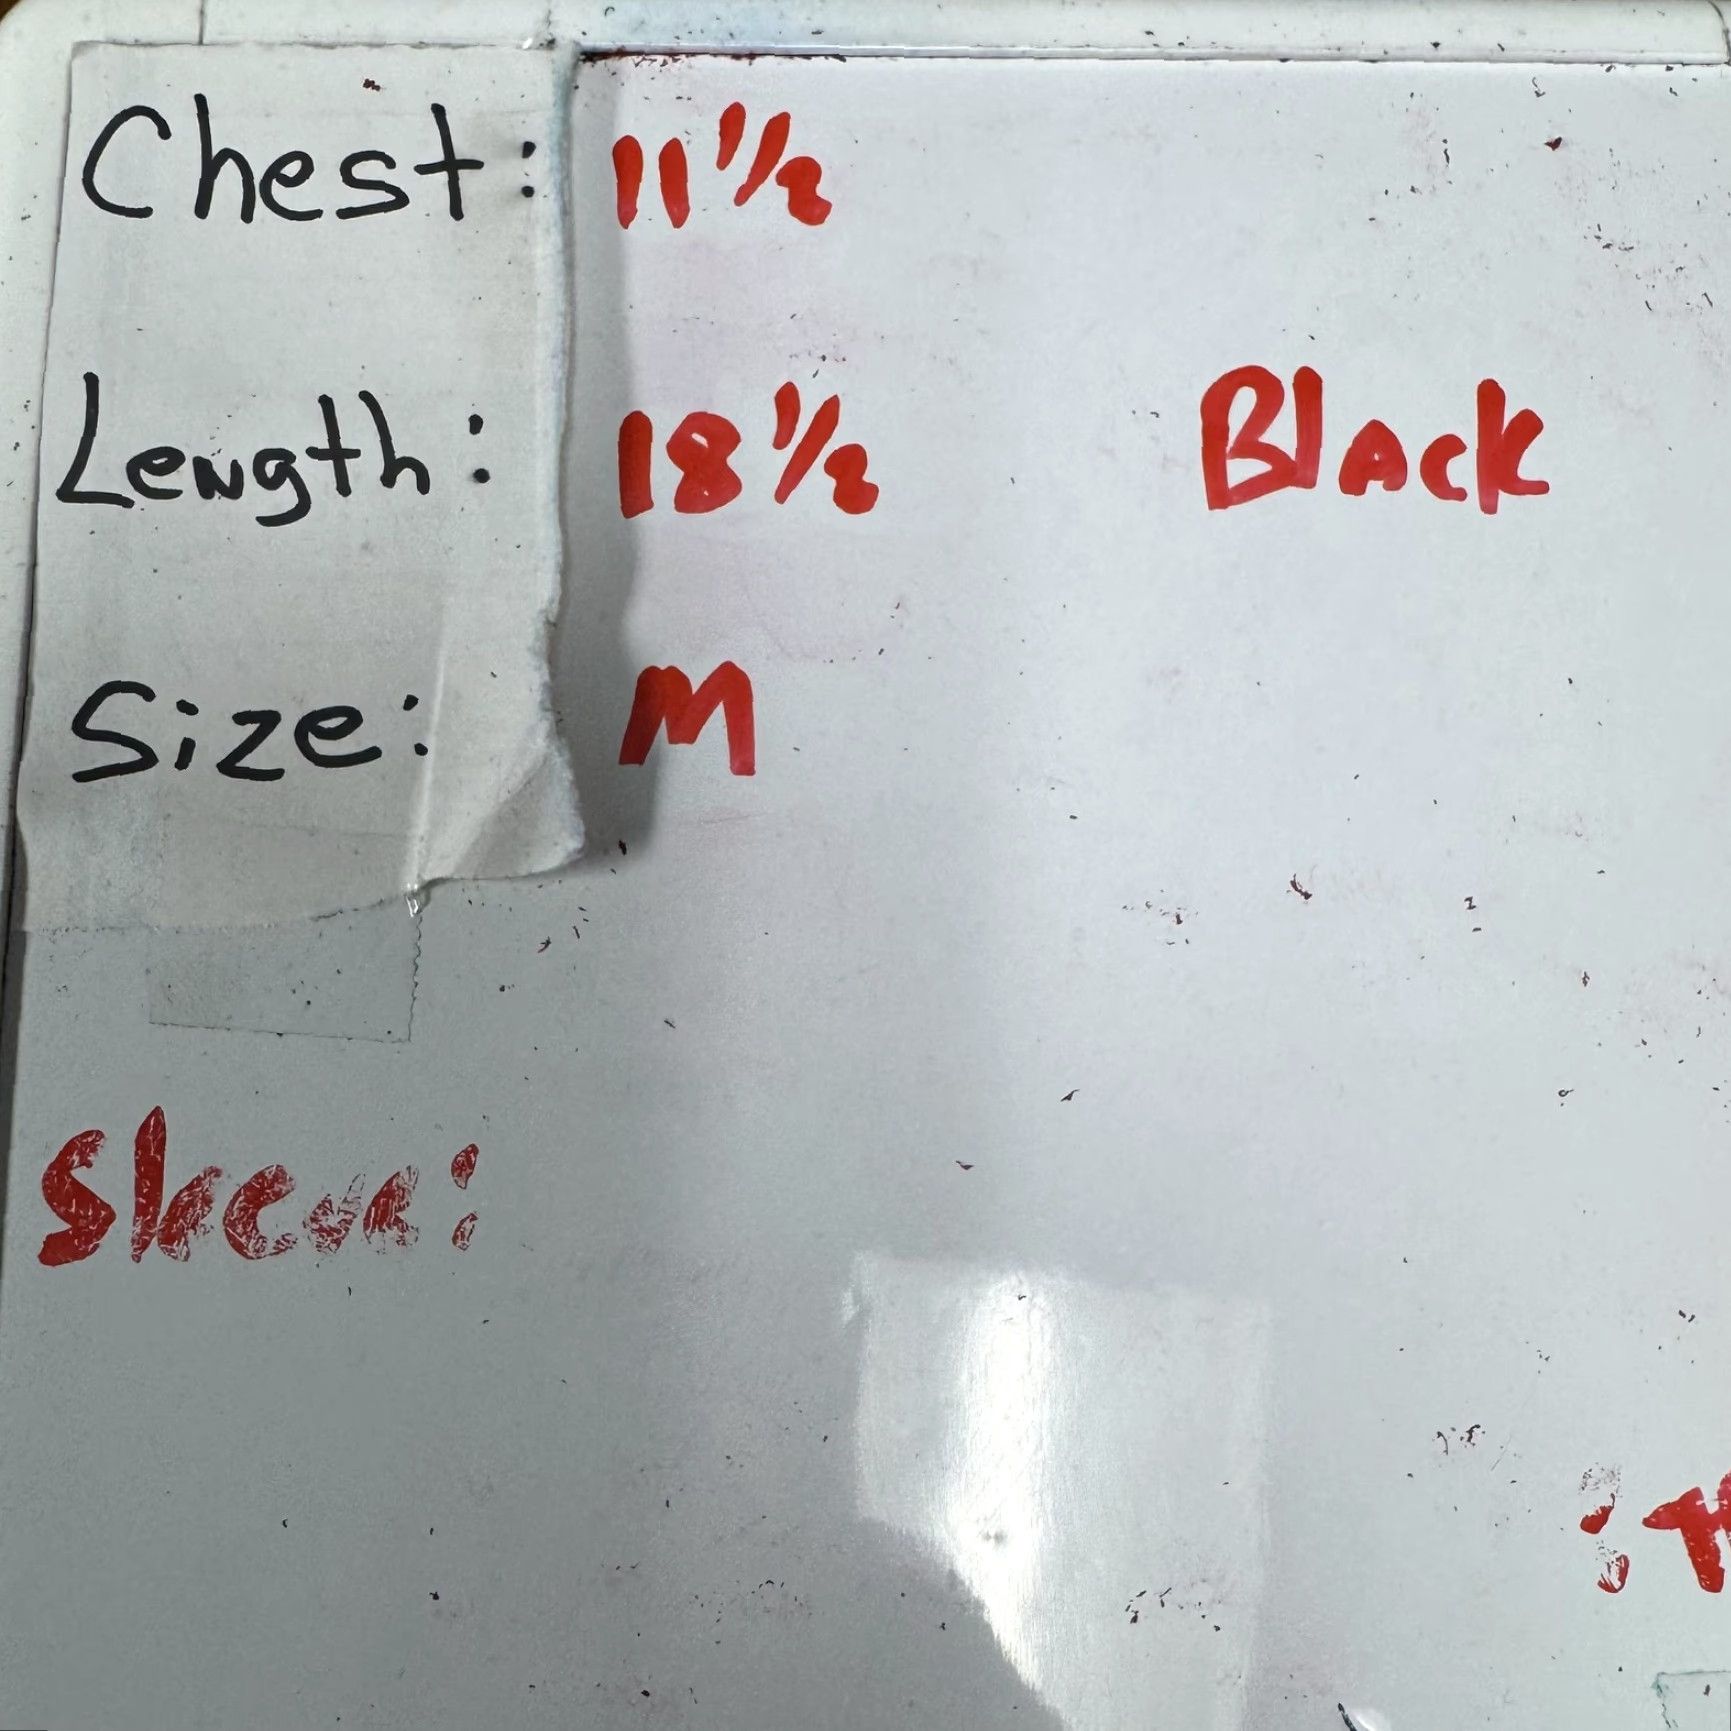 Chest: 11 1/2
Length: 18 1/2 Black
Size: M